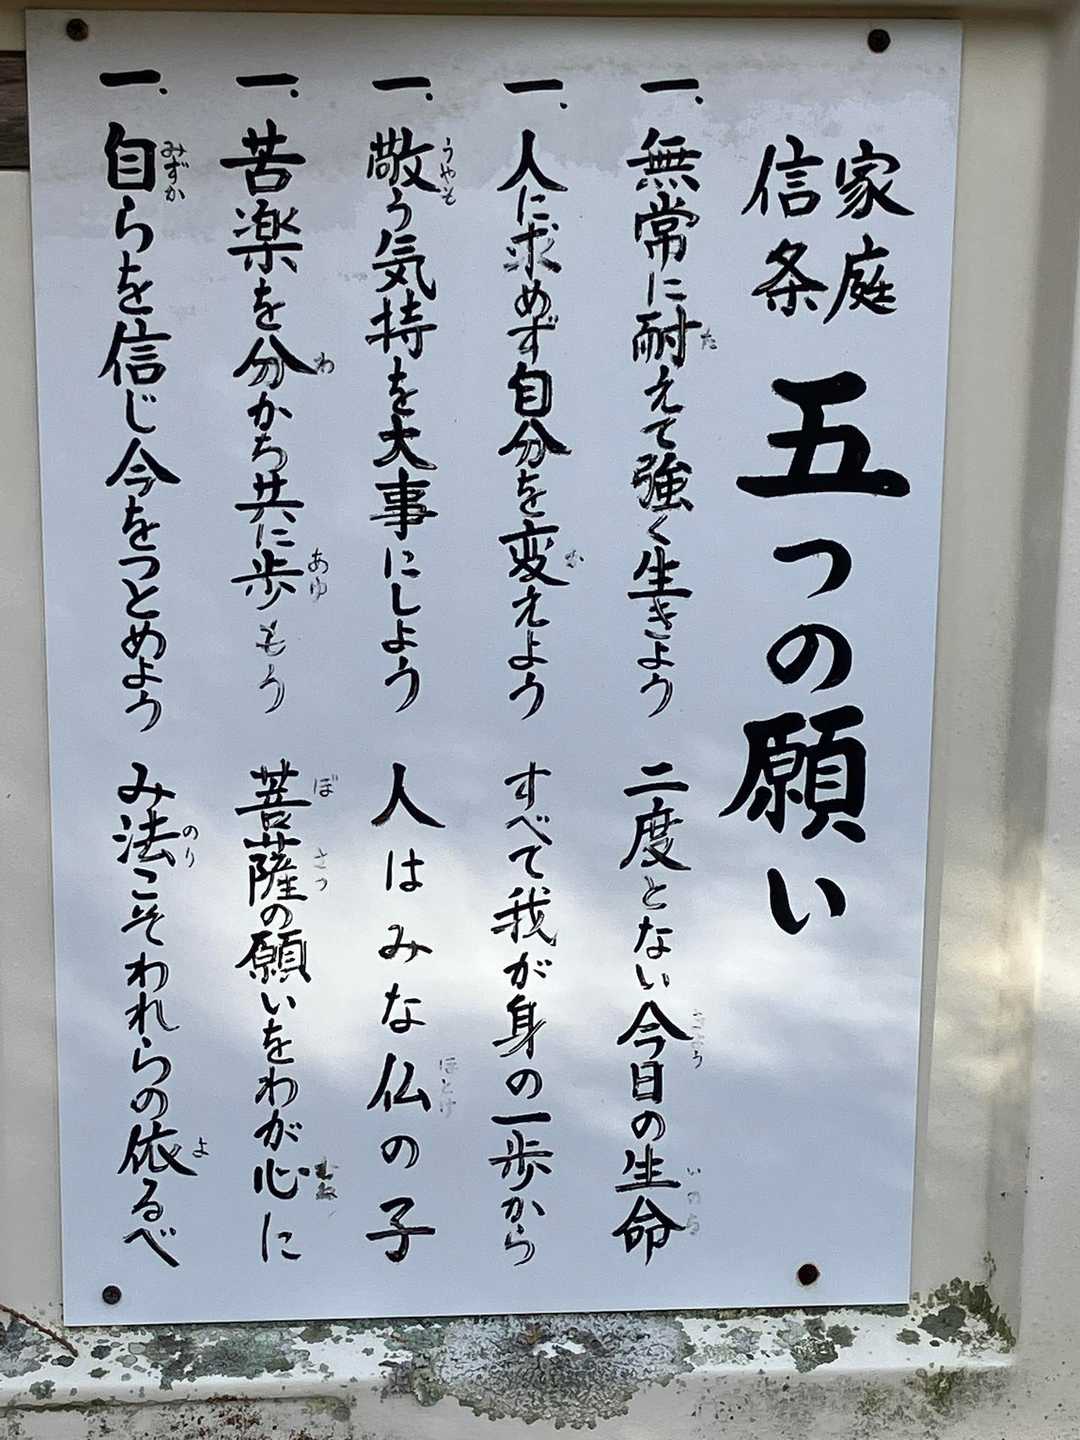 家庭信条 五つの願い
一、無常に耐えて強く生きよう 二度とない今日の生命
一、人に求めず自分を変えよう すべて我が身の一歩から
一、敬う気持を大事にしよう 人はみな仏の子
一、苦楽を分かち共に歩もう 菩薩の願いをわが心に
一、自らを信じ今をつとめよう み法こそわれらの依るべ